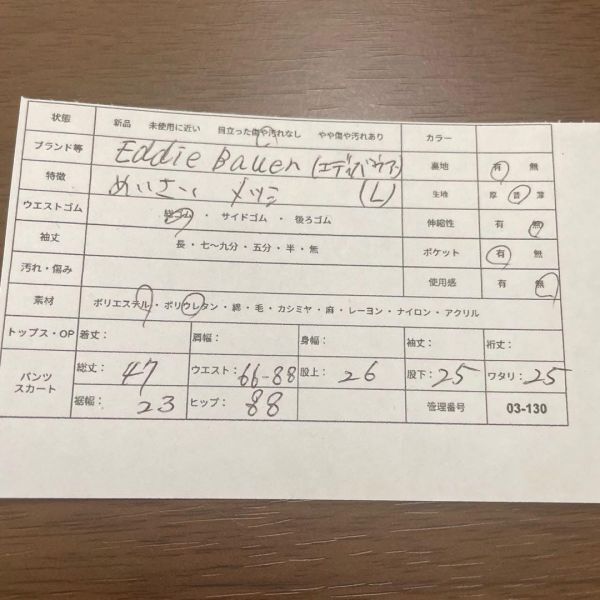 状態 新品 未使用に近い 目立った傷や汚れなし やや傷や汚れあり カラー
ブランド等 Eddie Bauer (エディバウアー) 裏地 有 無
特徴 めいさい メンシ (L) 生地 厚 普 薄
ウエストゴム 総ゴム ・ サイドゴム ・ 後ろゴム 伸縮性 有 無
袖丈 長・七〜九分・五分・半・無 ポケット 有 無
汚れ・傷み 使用感 有 無
素材 ポリエステル・ポリウレタン・綿・毛・カシミヤ・麻・レーヨン・ナイロン・アクリル
トップス・OP 着丈： 肩幅： 身幅： 袖丈： 裄丈：
パンツ スカート 総丈： 47 ウエスト： 66-88 股上： 26 股下： 25 ワタリ： 25
裾幅： 23 ヒップ： 88 管理番号 03-130